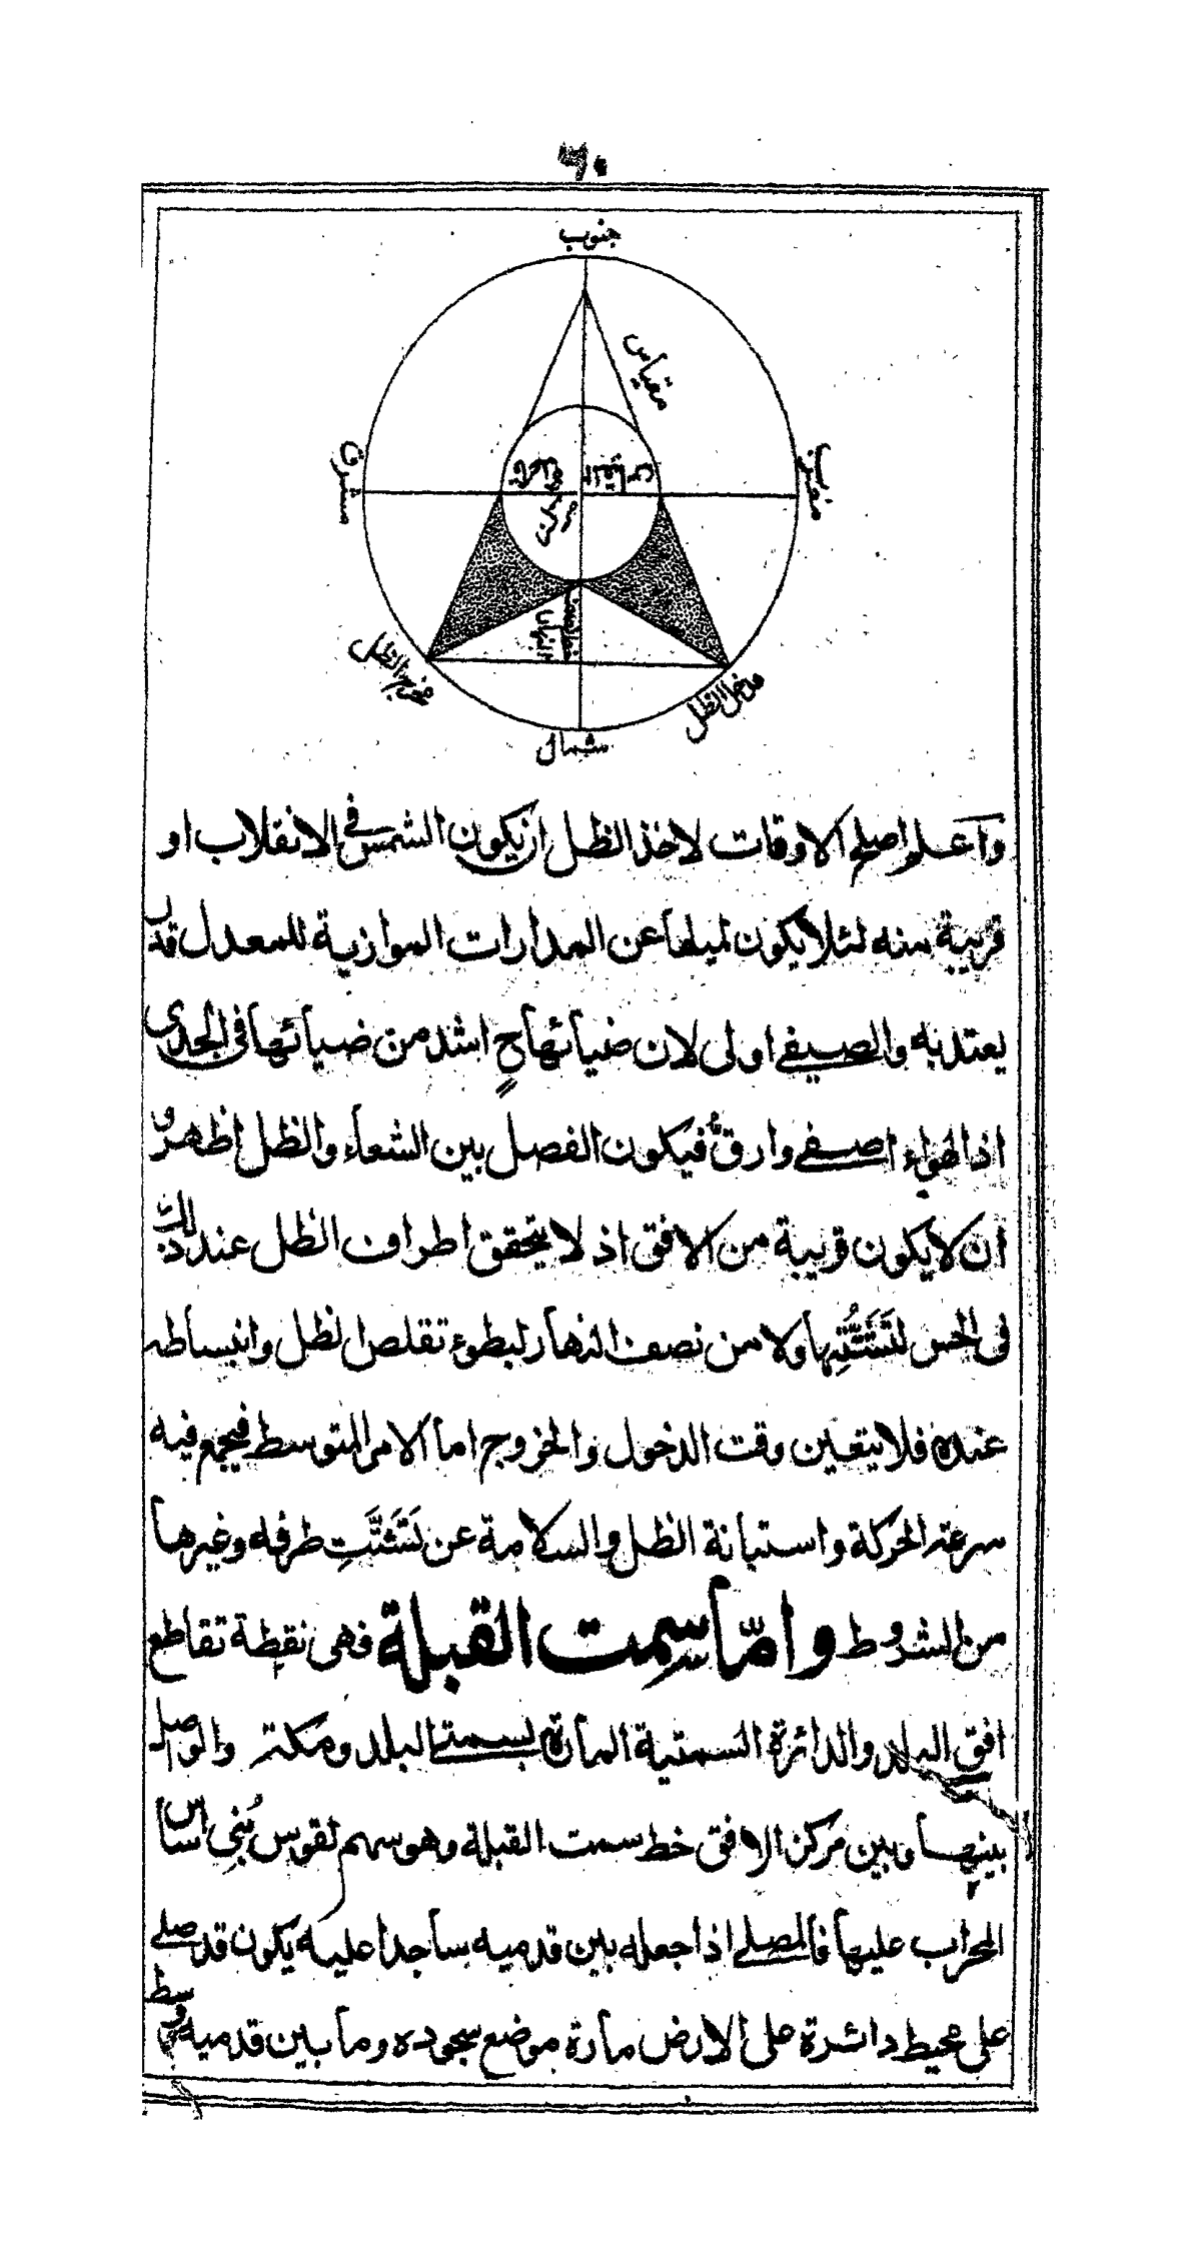 ٦٠
جنوب
مقياس
مشرق
مغرب
المقياس
خط نصف النهار
مخرج الظل
مدخل الظل
شمال
واعلم اصلح الاوقات لاخذ الظل ان يكون الشمس فى الانقلاب او
قريبة منه لئلا يكون لميلها عن المدارات الموازية للمعدل قدر
يعتد به والصيفے اولى لان ضيائها ح اشد من ضيائها فى الجدى
اذ الهواء اصفے وارق فيكون الفصل بين الشعاء والظل اظهر و
ان لا يكون قريبة من الافق اذ لا يتحقق اطراف الظل عند ذلك
فى الحس لتشتتها ولا من نصف النهار لبطوء تقلص الظل وانبساطه
عنده فلا يتعين وقت الدخول والخروج اما الامر المتوسط فيجمع فيه
سرعة الحركة واستبانة الظل والسلامة عن تشتت طرفه وغيرها
من الشروط واما سمت القبلة فهى نقطة تقاطع
افق البلد والدائرة السمتية المارة بسمتے البلد ومكة والواصل
بينها وبين مركز الافق خط سمت القبلة وهو سهم لقوس بنى اساس
المحراب عليها فالمصلے اذا جعله بين قدميه ساجدا عليه يكون قد صلے
على محيط دائرة على الارض مارة موضع سجوده وما بين قدميه وسط